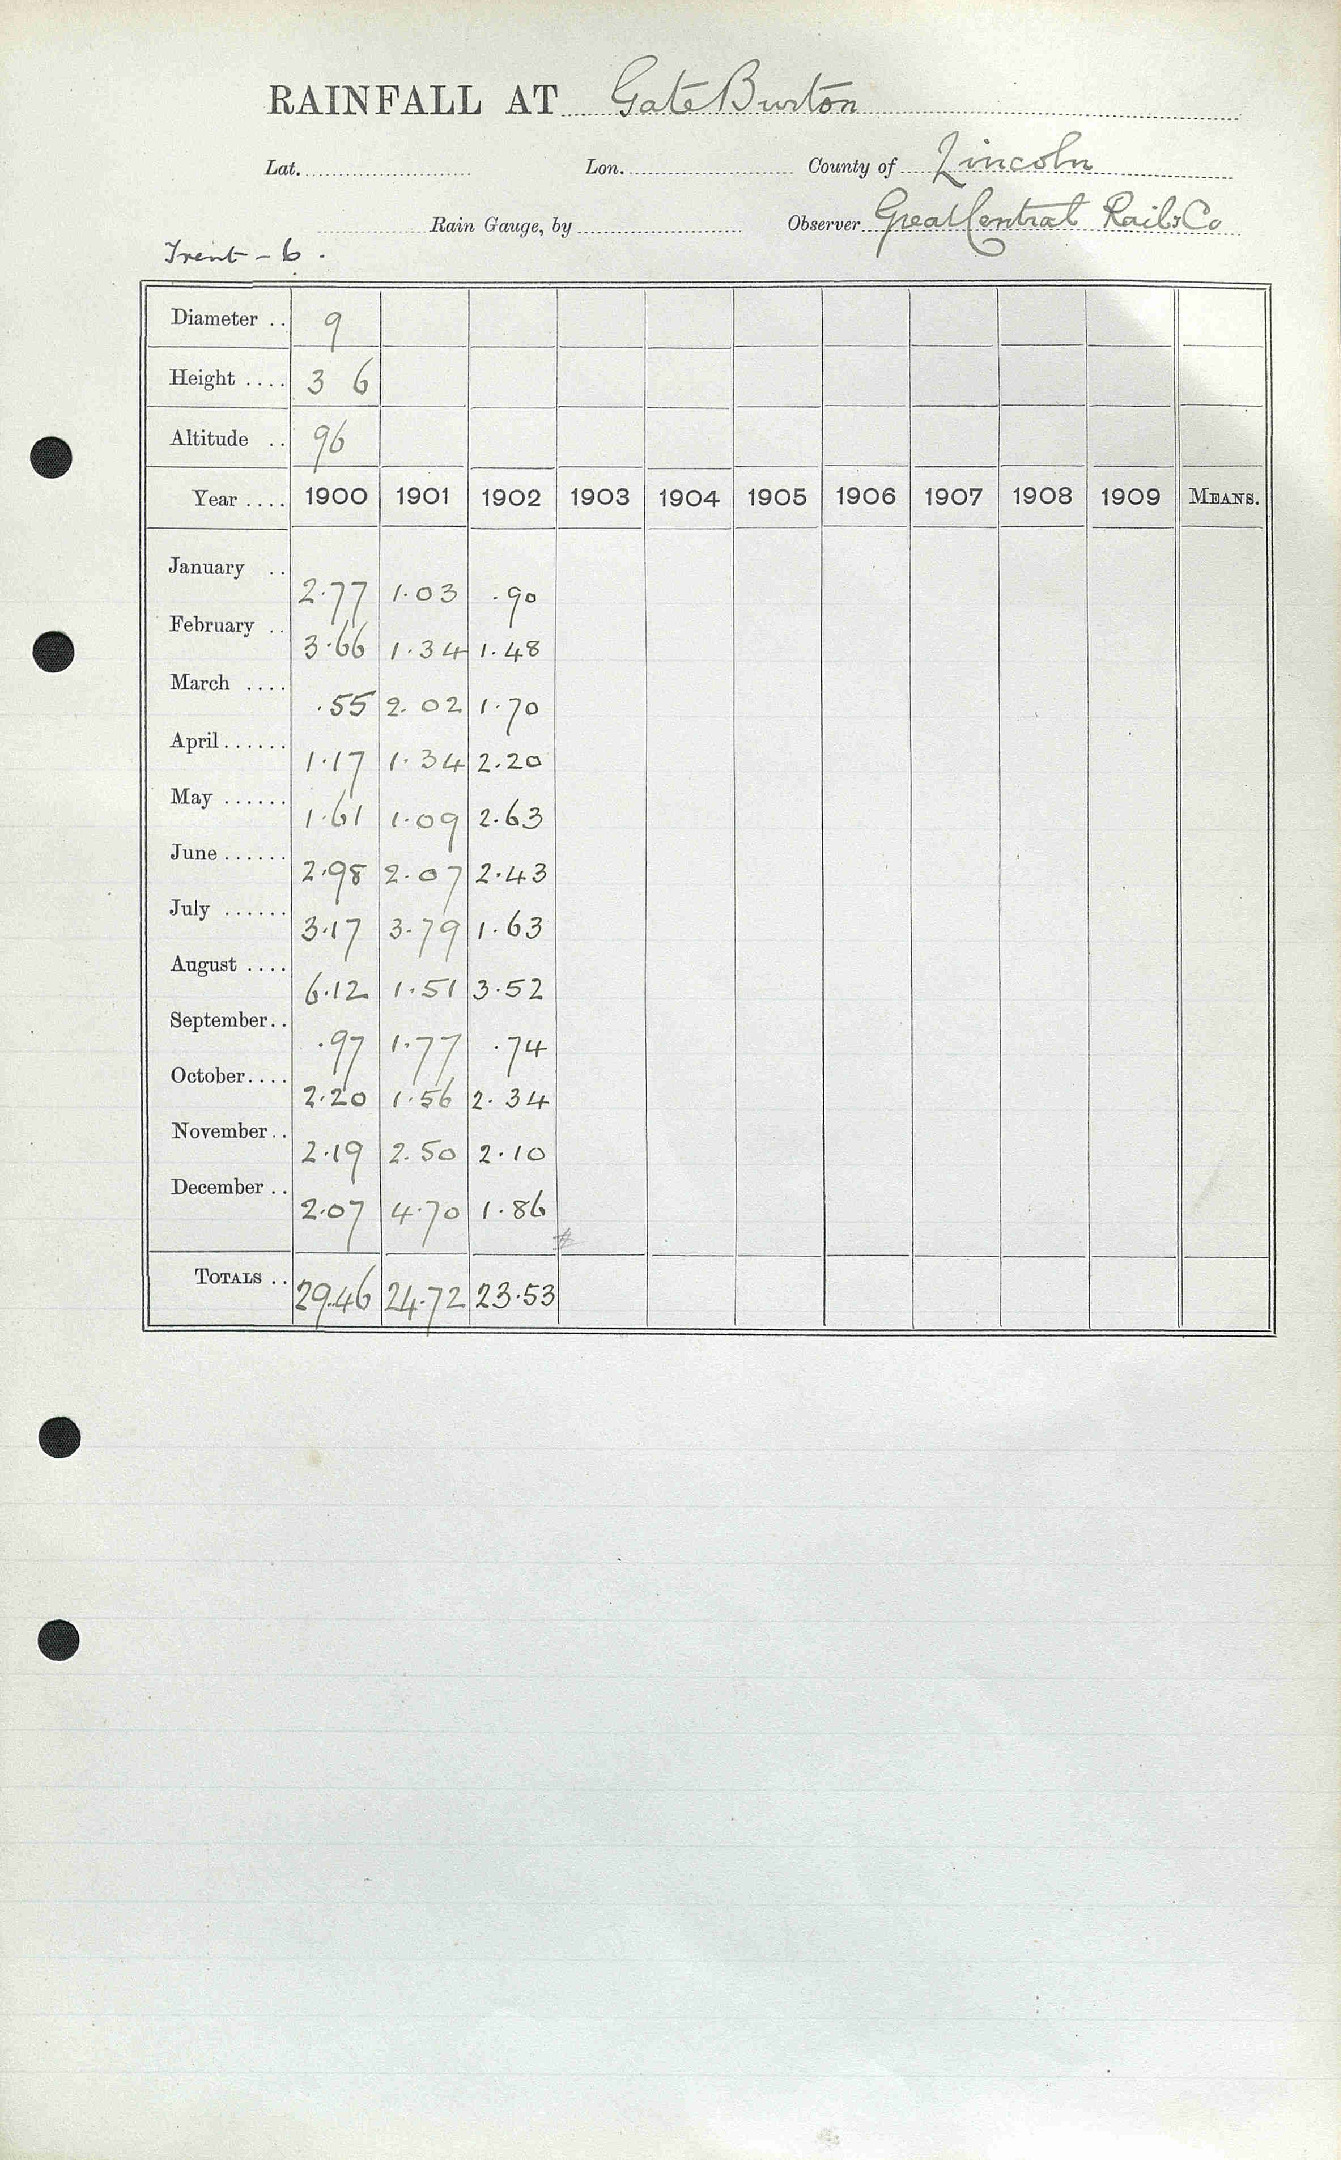 RAINFALL AT Gate Burton
Lat. Lon. County of Lincoln
Rain Gauge, by Observer Great Central Rail. Co
Trent - 6.
Diameter .. 9
Height .... 3 6
Altitude .. 96
Year .... 1900 1901 1902 1903 1904 1905 1906 1907 1908 1909 MEANS.
January .. 2.77 1.03 .90
February .. 3.66 1.34 1.48
March .... .55 2.02 1.70
April...... 1.17 1.34 2.20
May ...... 1.61 1.09 2.63
June...... 2.98 2.07 2.43
July ...... 3.17 3.79 1.63
August .... 6.12 1.51 3.52
September.. .97 1.77 .74
October.... 2.20 1.56 2.34
November.. 2.19 2.50 2.10
December .. 2.07 4.70 1.86
TOTALS .. 29.46 24.72 23.53